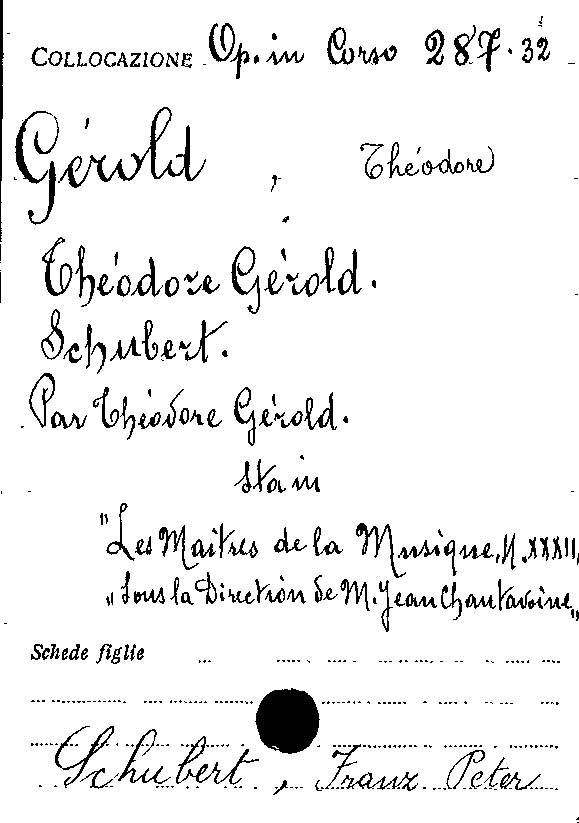 COLLOCAZIONE Op. in Corso 287.32
Gérold, Théodore
Théodore Gérold.
Schubert.
Par Théodore Gérold.
Sta in
"Les Maîtres de la Musique, N. XXXII,
"Sous la Direction de M. Jean Chantavoine"
Schede figlie
Schubert, Franz Peter